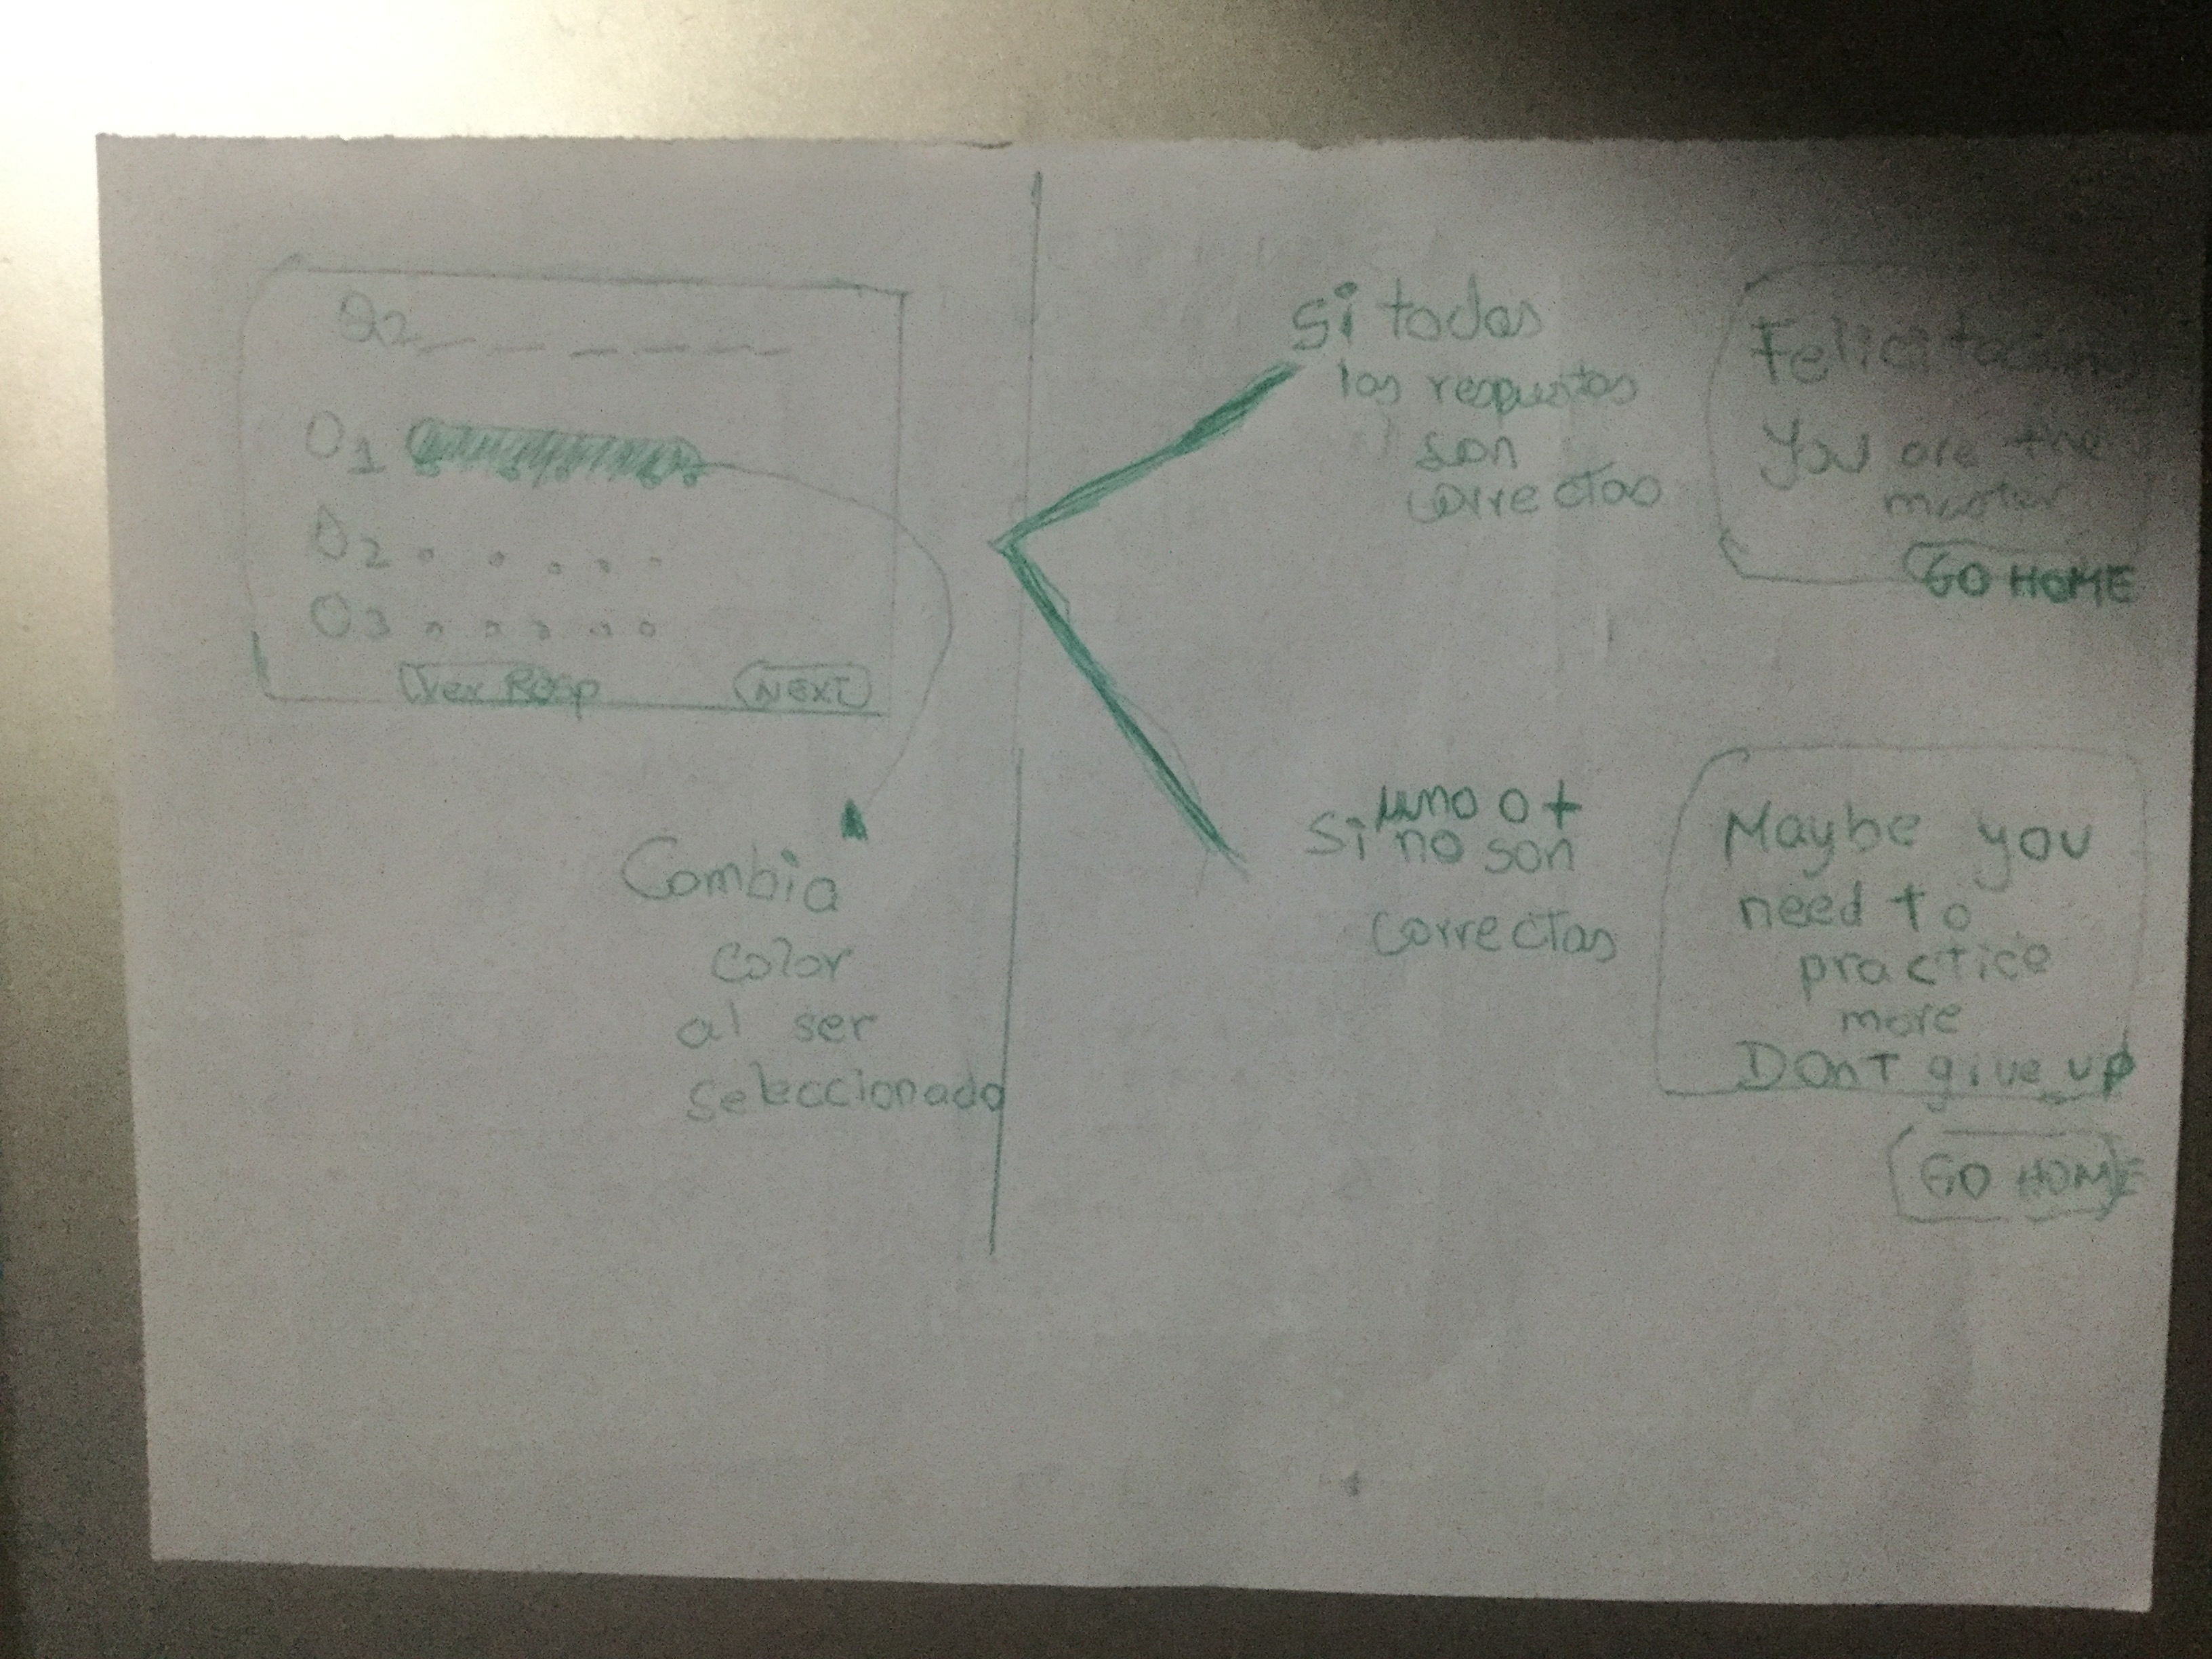 Q2
O1
O2
O3
Ver Resp
NEXT
Cambia
color
al ser
seleccionado
Si todas
las respuestas
son
correctas
Felicitaciones
You are the
master
GO HOME
uno o +
Si no son
correctas
Maybe you
need to
practice
more
Don't give up
GO HOME